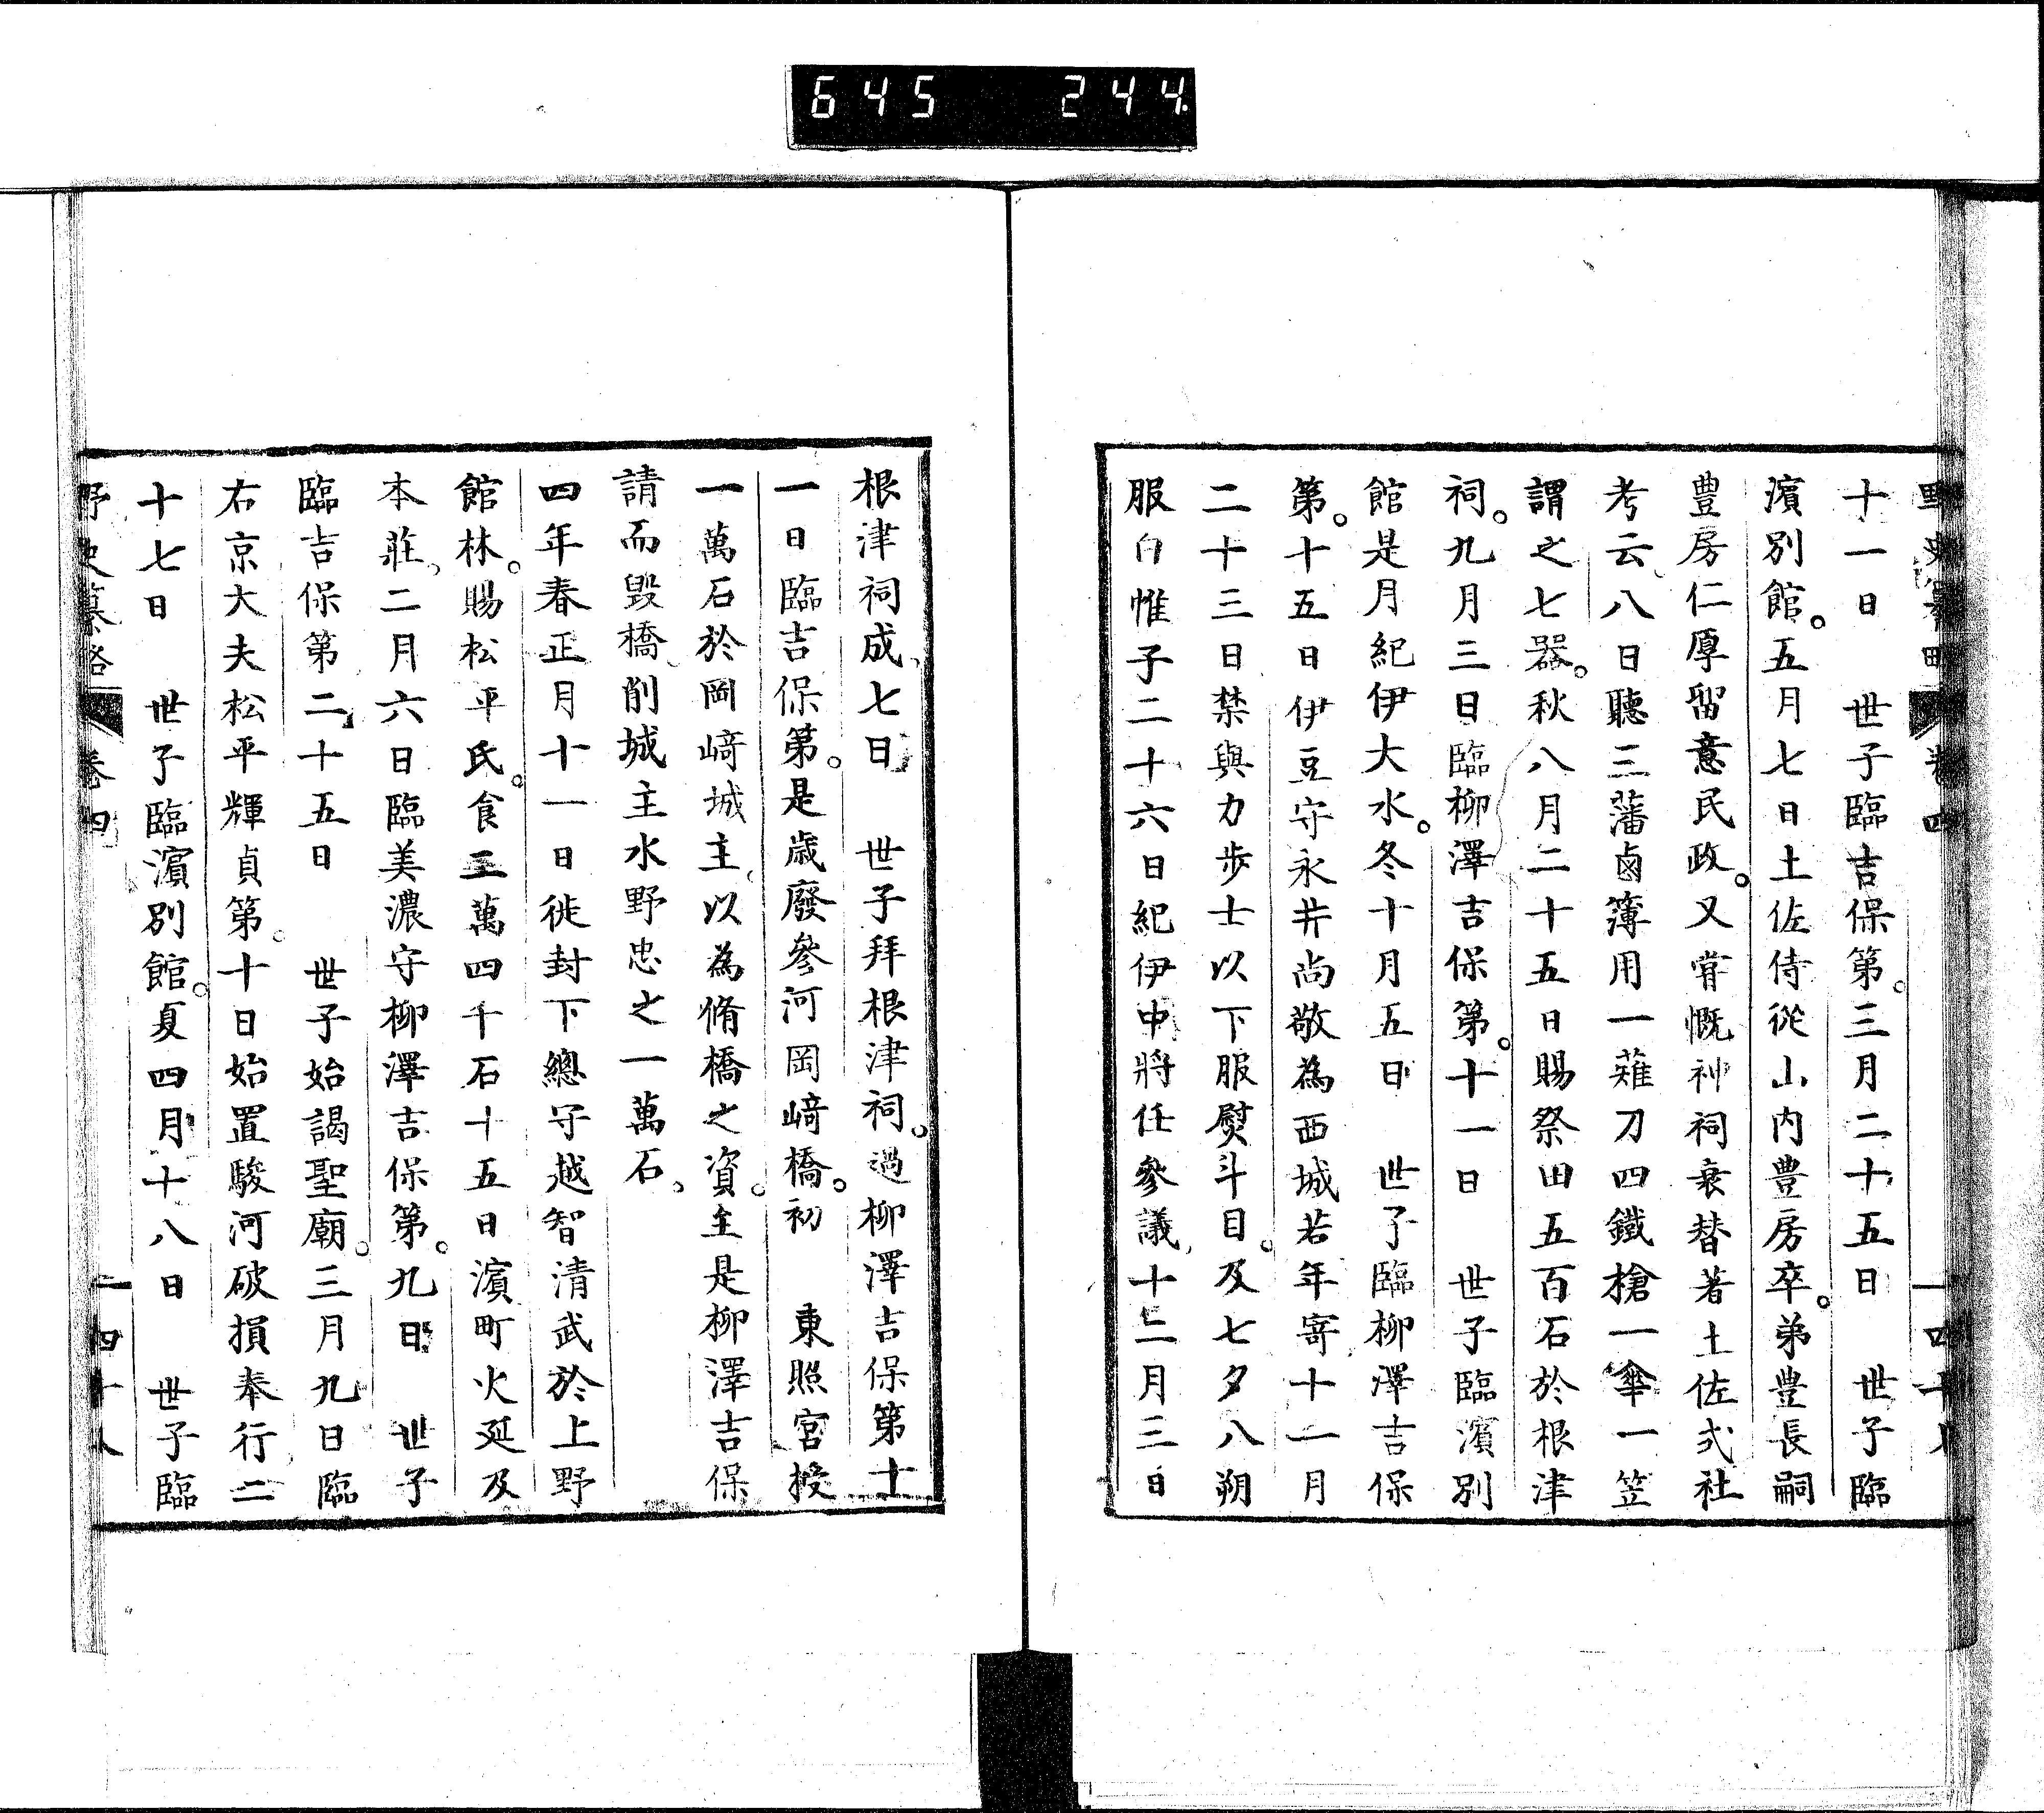 645 244
野史纂略 卷四 一四十八
十一日　世子臨吉保第。三月二十五日　世子臨
濵別館。五月七日土佐侍從山内豊房卒。弟豊長嗣
豊房仁厚留意民政。又甞慨神祠衰替著土佐式社
考云、八日聽三藩鹵簿用一薙刀四鐵槍一傘一笠
謂之七器。秋八月二十五日賜祭田五百石於根津
祠。九月三日臨柳澤吉保第。十一日　世子臨濵別
館是月紀伊大水。冬十月五日　世子臨柳澤吉保
第。十五日伊豆守永井尚敬為西城若年寄十一月
二十三日禁與力步士以下服熨斗目。及七夕八朔
服白惟子二十六日紀伊中將任參議、十二月三日
根津祠成、七日　世子拜根津祠。過柳澤吉保第十
一日臨吉保第。是歲廢參河岡﨑橋。初　東照宮授
一萬石於岡﨑城主、以為脩橋之資。至是柳澤吉保
請而毀橋、削城主水野忠之一萬石、
四年春正月十一日徙封下總守越智清武於上野
館林。賜松平氏。食二萬四千石十五日濵町火延及
本莊、二月六日臨美濃守柳澤吉保第。九日　世子
臨吉保第二、十五日　世子始謁聖廟。三月九日臨
右京大夫松平輝貞第。十日始置駿河破損奉行二
十七日　世子臨濵別館。夏四月十八日　世子臨
野史纂略 卷四 一四十八